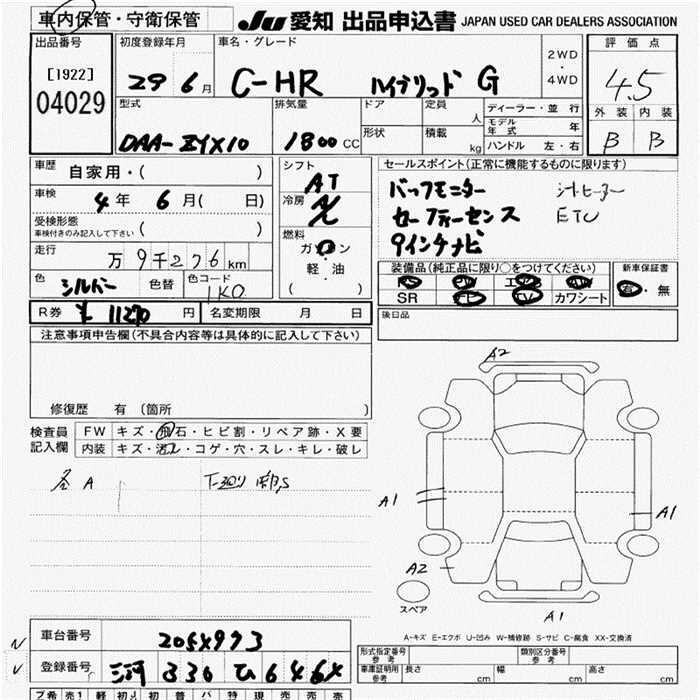 車内保管・守衛保管
JU 愛知 出品申込書 JAPAN USED CAR DEALERS ASSOCIATION
出品番号
[1922]
04029
初度登録年月
29 6月
車名・グレード
C-HR ハイブリッド G
2WD
・
4WD
評価点
4.5
外装 内装
B B
型式
DAA-ZYX10
排気量
1800 CC
ドア
形状
定員 人
積載 kg
ディーラー・並行
モデル年式 年
ハンドル 左・右
車歴 自家用・( )
車検 4年 6月( 日)
受検形態
車検付きのみ記入して下さい ( )
走行 万9千276km
色 シルバー 色替 色コード 1K0
シフト
AT
冷房
燃料
ガソリン
・
軽・油
( )
セールスポイント(正常に機能するものに限ります)
バックモニター
セーフティーセンス ETC
9インチナビ
装備品(純正品に限り○をつけてください)
PS PW エアB AW
SR TV カワシート
新車保証書
有・無
R券 ¥11270円 名変期限 月 日
後日品
注意事項申告欄(不具合内容等は具体的に記入して下さい)
修復歴 有(箇所 )
検査員
記入欄
FW キズ・飛石・ヒビ割・リペア跡・X要
内装 キズ・汚レ・コゲ・穴・スレ・キレ・破レ
A2
A1
A1
A2
A1
スペア
A-キズ E-エクボ U-凹み W-補修跡 S-サビ C-腐食 XX-交換済
車台番号 2054973
登録番号 三河 330 ひ 646X
型式指定番号
参考
類別区分番号
参考
車庫証明用
参考
長さ cm 幅 cm 高さ cm